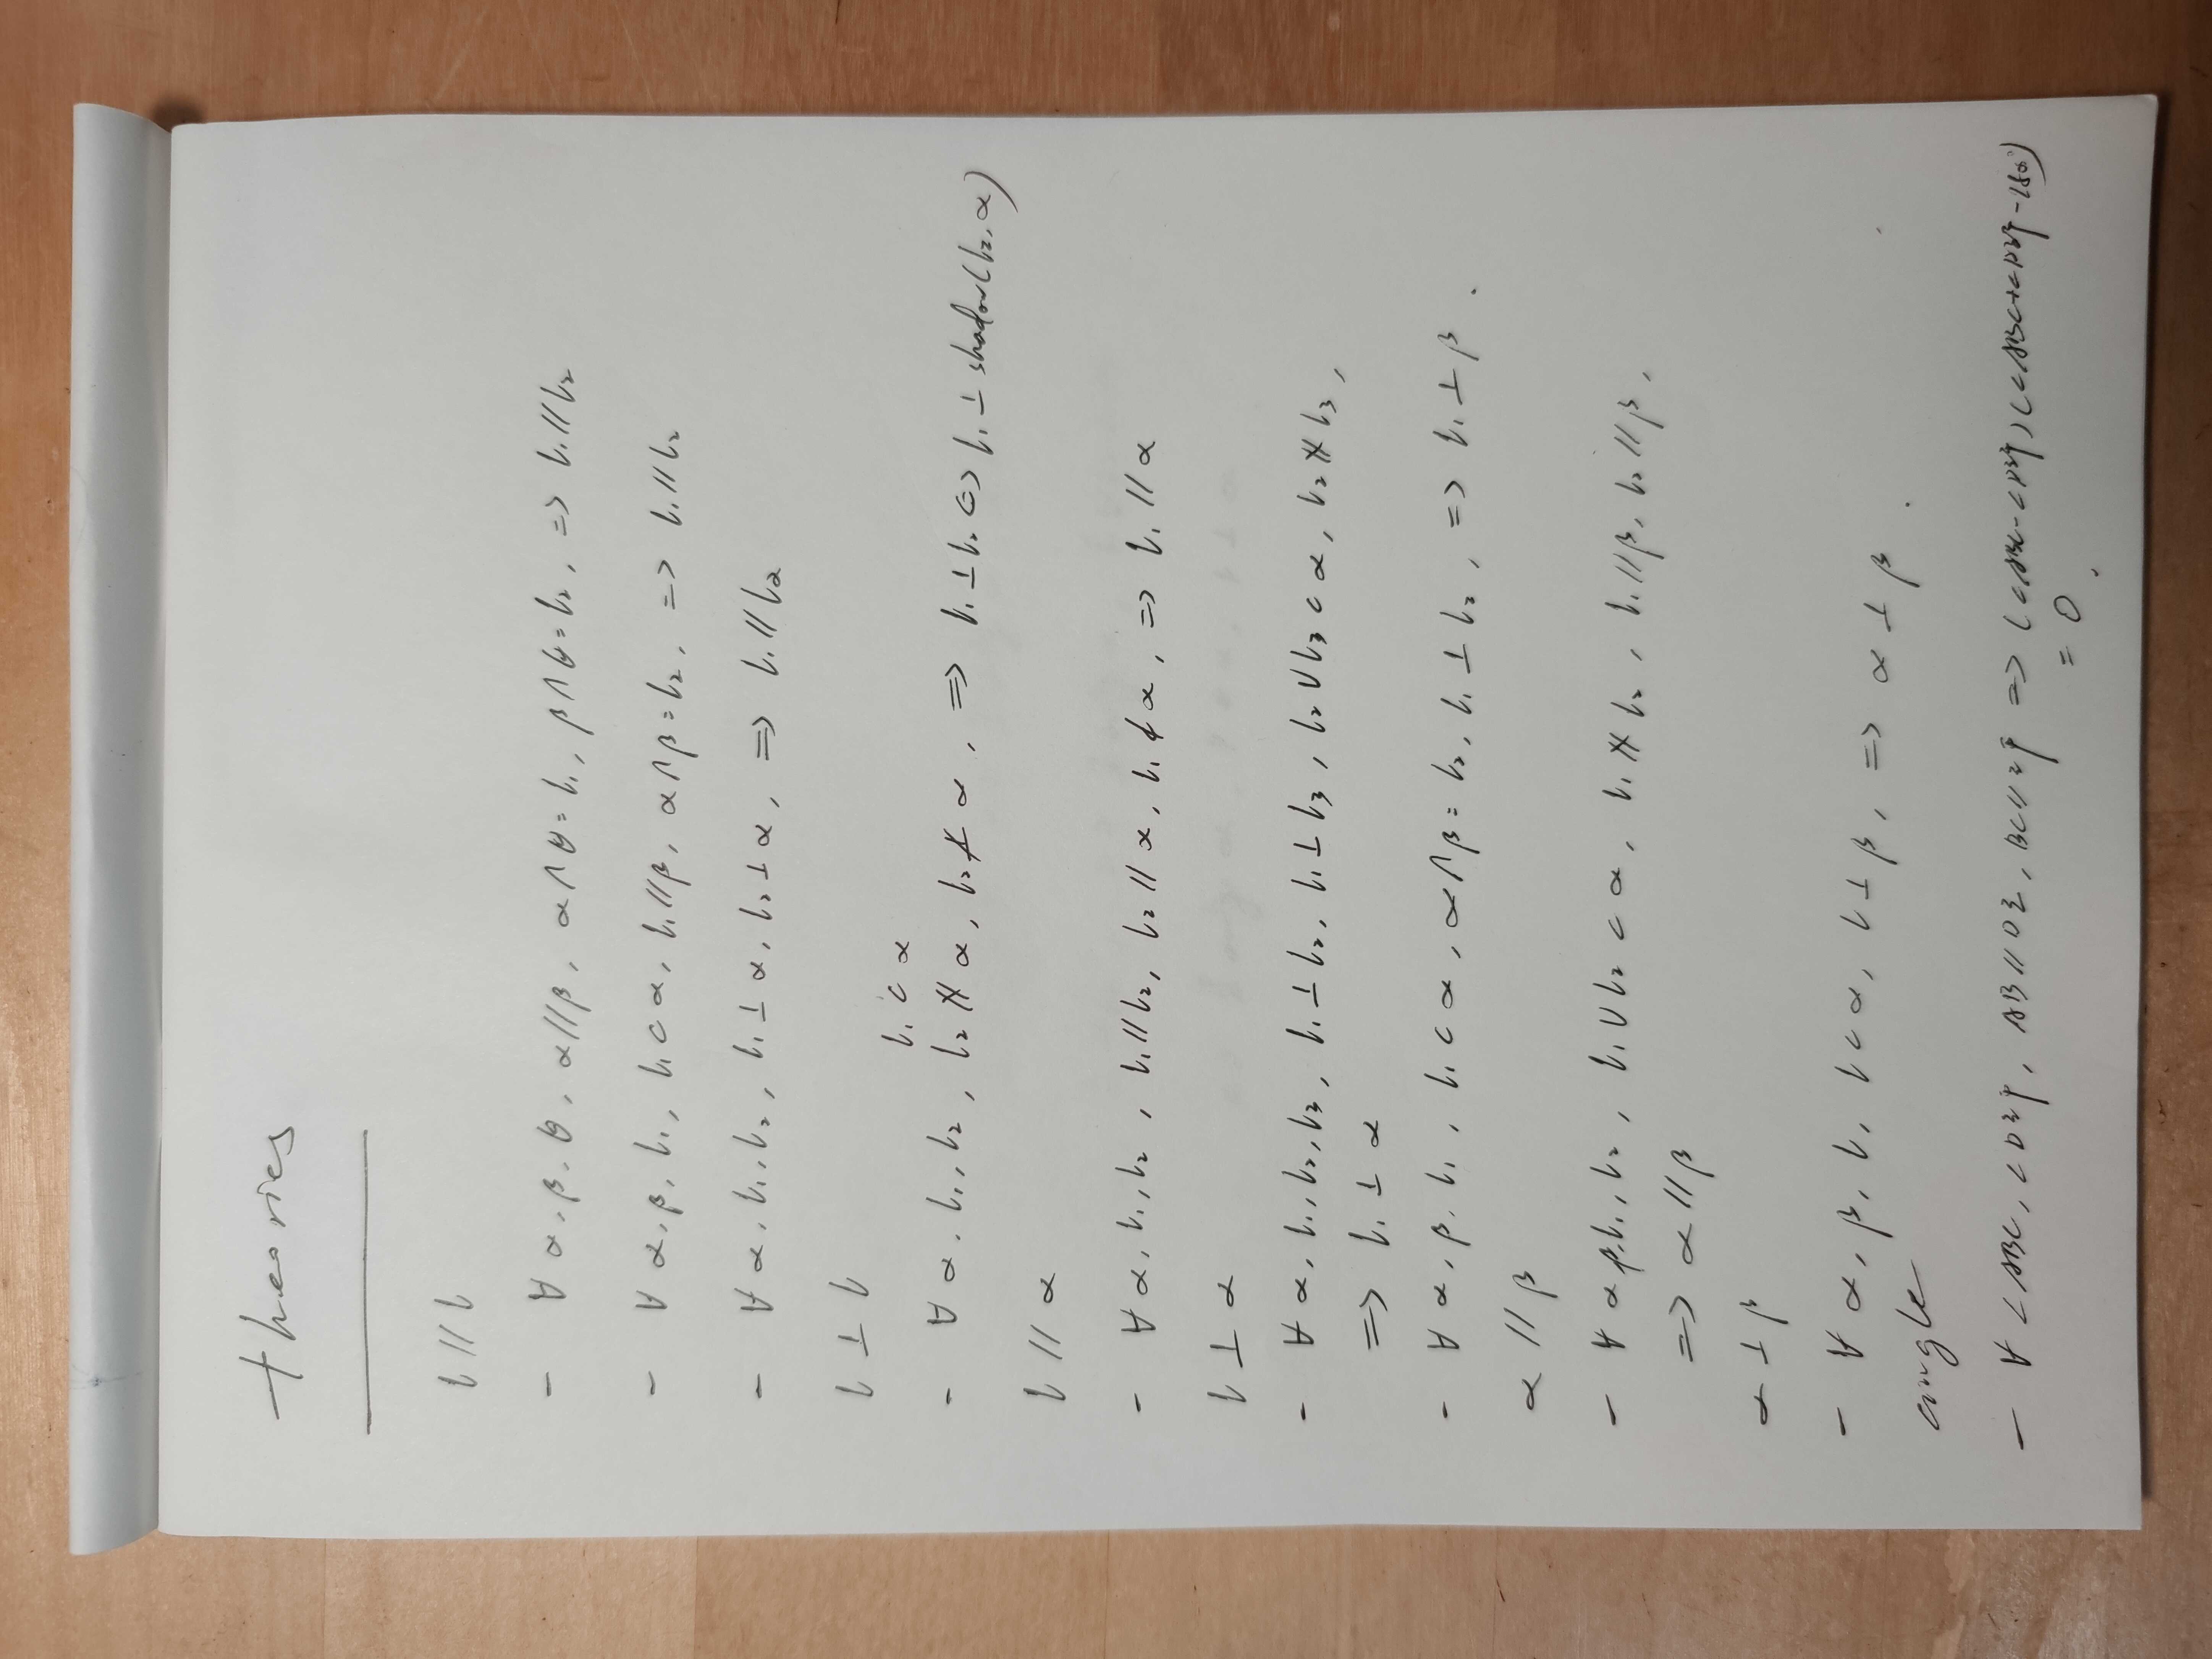 theories
l // l
- ∀ α, β, θ, α//β, α∩θ=l₁, β∩θ=l₂, => l₁//l₂
- ∀ α, β, l₁, l₁⊂α, l₁//β, α∩β=l₂, => l₁//l₂
- ∀ α, l₁, l₂, l₁⊥α, l₂⊥α, => l₁//l₂
l ⊥ l
l₁ ⊂ α
- ∀ α, l₁, l₂, l₂ ∦ α, l₂ ⊥̸ α, => l₁⊥l₂ <=> l₁⊥shadow(l₂, α)
l // α
- ∀ α, l₁, l₂, l₁//l₂, l₂//α, l₁⊄α, => l₁//α
l ⊥ α
- ∀ α, l₁, l₂, l₃, l₁⊥l₂, l₁⊥l₃, l₂∪l₃⊂α, l₂∦l₃,
=> l₁⊥α
- ∀ α, β, l₁, l₁⊂α, α∩β=l₂, l₁⊥l₂, => l₁⊥β.
α // β
- ∀ α β, l₁, l₂, l₁∪l₂⊂α, l₁∦l₂, l₁//β, l₂//β,
=> α//β
α ⊥ β
- ∀ α, β, l, l⊂α, l⊥β, => α⊥β.
angle
- ∀ ∠ABC, ∠DEF, AB//DE, BC//EF => (∠ABC-∠DEF)(∠ABC+∠DEF-180°)
= 0.